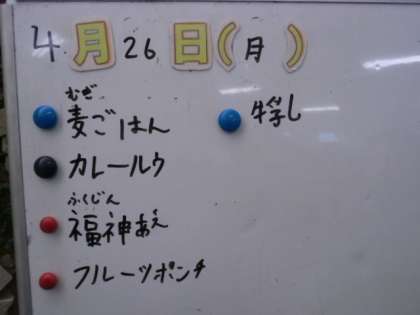 4月26日(月)
むぎ
麦ごはん
牛乳
カレールウ
ふくじん
福神あえ
フルーツポンチ